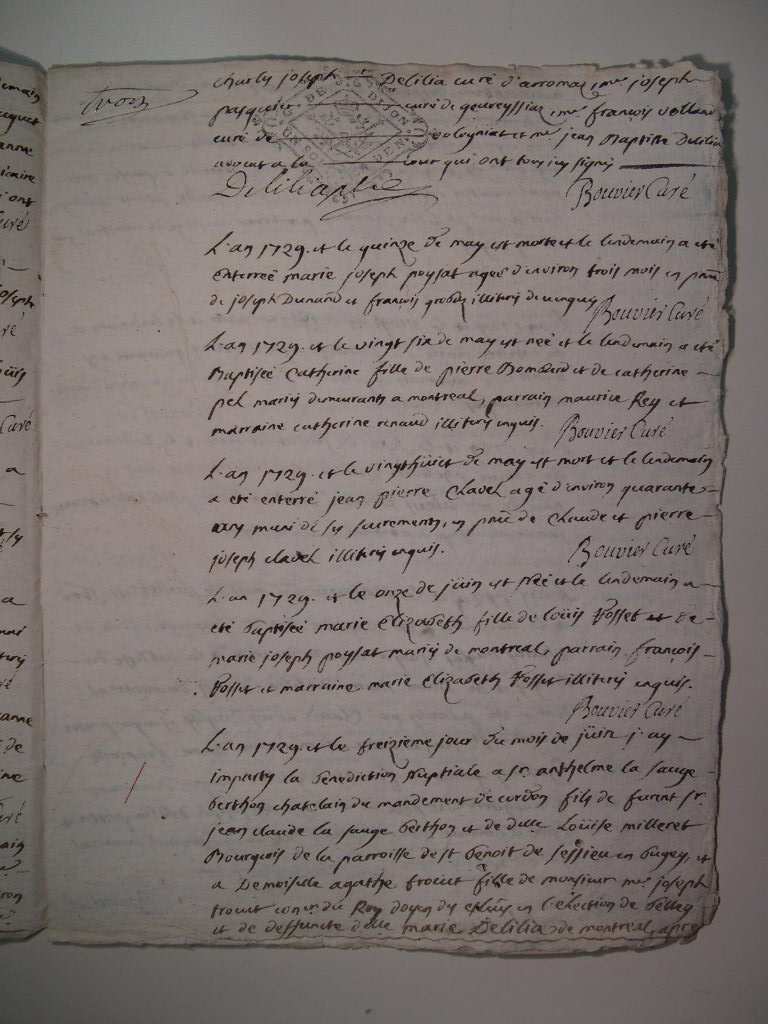 charles joseph Delilia curé d'arromas, mre joseph
pasquier curé de geovreyssiat, mre françois vollan
curé de et mre jean Baptiste Delilia
avocat a la cour qui ont tous icy signés
Delilia ptre Bouvier Curé
L'an 1729. et le quinze de may est morte et le lendemain a eté
enterreé marie joseph poysat ageé d'environ trois mois en pnce
de joseph Dunand et françois illiterés de enquis Bouvier Curé
L'an 1729. et le vingt six de may est neé et le lendemain a eté
Baptiseé Catherine fille de pierre et de catherine
pel mariés demeurants a montreal, parrain maurice Rey et
marraine catherine renaud illiterés enquis. Bouvier Curé
L'an 1729. et le vingthuict de may est mort et le lendemain
a eté enterré jean pierre Clavel agé d'environ quarante
ans muni de ses sacrements, en pnce de Claude et pierre
joseph clavel illiterés enquis. Bouvier Curé
L'an 1729. et le onze de juin est neé et le lendemain a
eté baptiseé marie Elizabeth fille de Loüis Fosset et de
marie joseph poysat mariés de montreal, parrain françois
Fosset et marraine marie Elizabeth Fosset illiterés enquis.
Bouvier Curé
L'an 1729. et le treizieme jour du mois de juin j'ay
imparty la benediction nuptiale a sr. anthelme la sauge
berthon chatelain du mandement de cordon fils de furent sr.
jean claude la sauge berthon et de dlle Loüise milleret
Bourgeois de la parroisse de st Benoit de sessieu en bugey, et
a Demoiselle agathe trocut fille de monsieur mre joseph
trocut conser du Roy doyen des esleus en l'election de belley
et de deffuncte dlle marie Delilia de montreal, apres